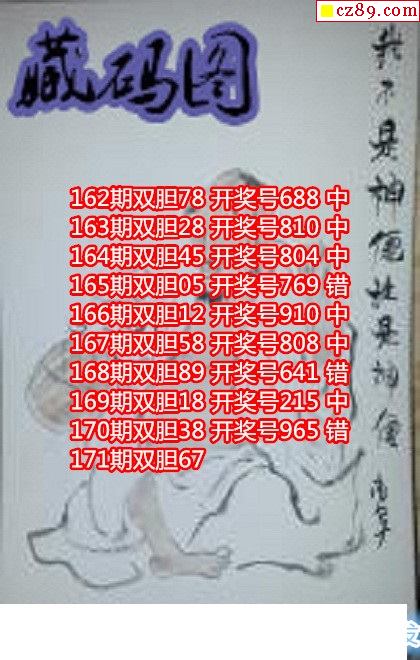 cz89.com
藏码图
162期双胆78 开奖号688 中
163期双胆28 开奖号810 中
164期双胆45 开奖号804 中
165期双胆05 开奖号769 错
166期双胆12 开奖号910 中
167期双胆58 开奖号808 中
168期双胆89 开奖号641 错
169期双胆18 开奖号215 中
170期双胆38 开奖号965 错
171期双胆67
我不是神
是神